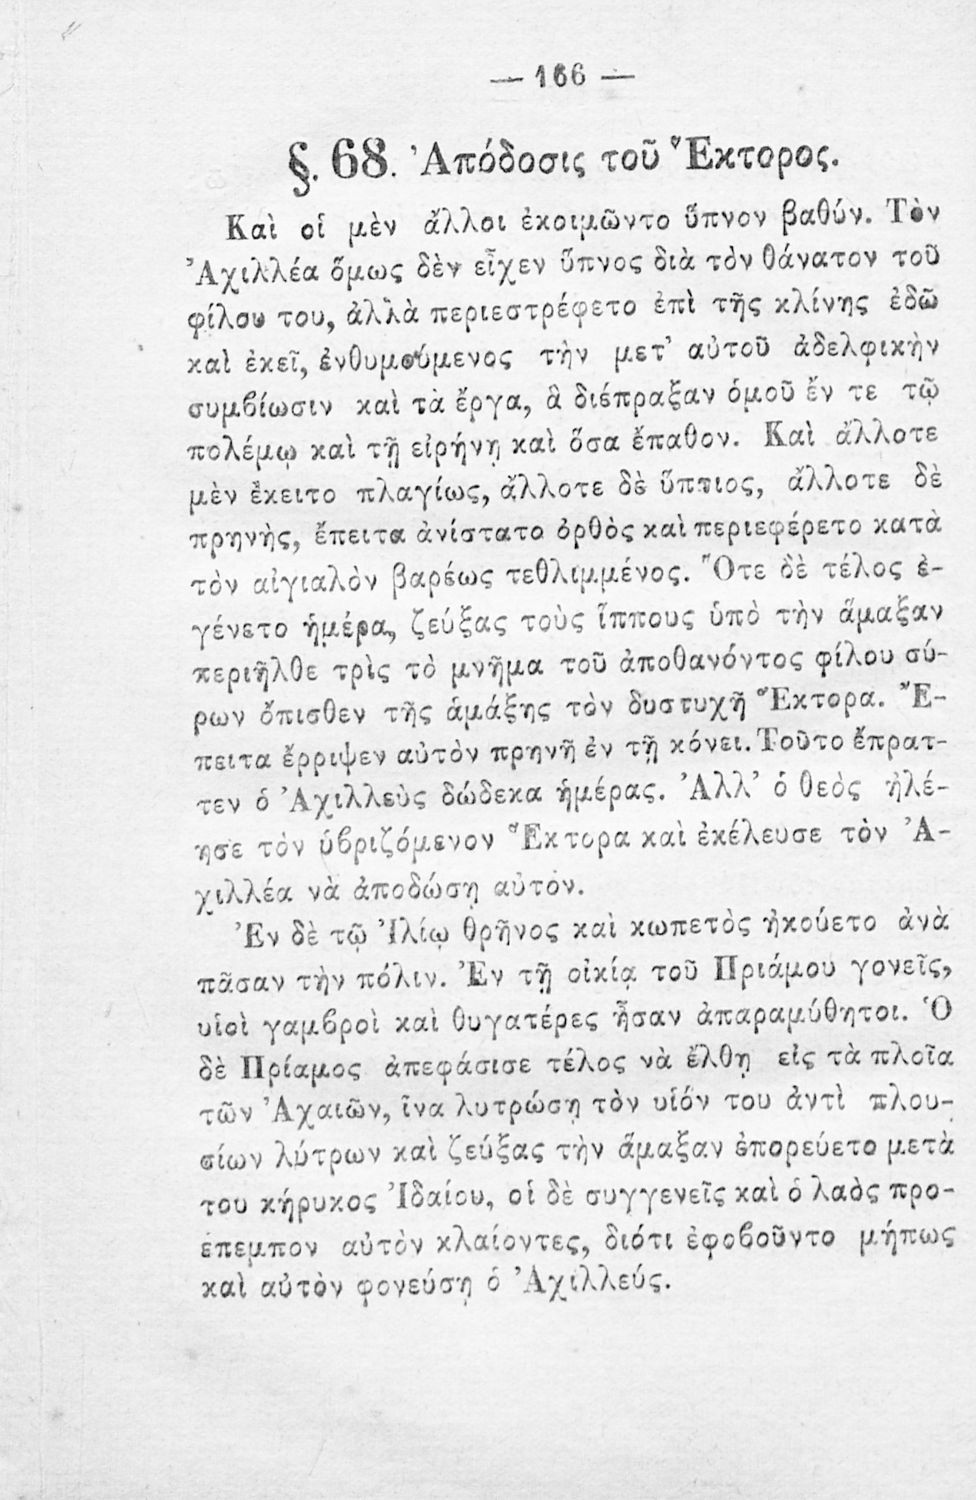 — 166 —
§. 68. Ἀπόδοσις τοῦ Ἕκτορος.
Καὶ οἱ μὲν ἄλλοι ἐκοιμῶντο ὕπνον βαθύν. Τὸν
Ἀχιλλέα ὅμως δὲν εἶχεν ὕπνος διὰ τὸν θάνατον τοῦ
φίλου του, ἀλλὰ περιεστρέφετο ἐπὶ τῆς κλίνης ἐδῶ
καὶ ἐκεῖ, ἐνθυμούμενος τὴν μετ’ αὐτοῦ ἀδελφικὴν
συμβίωσιν καὶ τὰ ἔργα, ἃ διέπραξαν ὁμοῦ ἔν τε τῷ
πολέμῳ καὶ τῇ εἰρήνῃ καὶ ὅσα ἔπαθον. Καὶ ἄλλοτε
μὲν ἔκειτο πλαγίως, ἄλλοτε δὲ ὕπτιος, ἄλλοτε δὲ
πρηνὴς, ἔπειτα ἀνίστατο ὀρθὸς καὶ περιεφέρετο κατὰ
τὸν αἰγιαλὸν βαρέως τεθλιμμένος. Ὅτε δὲ τέλος ἐ-
γένετο ἡμέρα, ζεύξας τοὺς ἵππους ὑπὸ τὴν ἅμαξαν
περιῆλθε τρὶς τὸ μνῆμα τοῦ ἀποθανόντος φίλου σύ-
ρων ὄπισθεν τῆς ἁμάξης τὸν δυστυχῆ Ἕκτορα. Ἔ-
πειτα ἔρριψεν αὐτὸν πρηνῆ ἐν τῇ κόνει. Τοῦτο ἔπρατ-
τεν ὁ Ἀχιλλεὺς δώδεκα ἡμέρας. Ἀλλ’ ὁ θεὸς ἠλέ-
ησε τὸν ὑβριζόμενον Ἕκτορα καὶ ἐκέλευσε τὸν Ἀ-
χιλλέα νὰ ἀποδώσῃ αὐτόν.
Ἐν δὲ τῷ Ἰλίῳ θρῆνος καὶ κωπετὸς ἠκούετο ἀνὰ
πᾶσαν τὴν πόλιν. Ἐν τῇ οἰκίᾳ τοῦ Πριάμου γονεῖς,
υἱοὶ γαμβροὶ καὶ θυγατέρες ἦσαν ἀπαραμύθητοι. Ὁ
δὲ Πρίαμος ἀπεφάσισε τέλος νὰ ἔλθῃ εἰς τὰ πλοῖα
τῶν Ἀχαιῶν, ἵνα λυτρώσῃ τὸν υἱόν του ἀντὶ πλου-
σίων λύτρων καὶ ζεύξας τὴν ἅμαξαν ἐπορεύετο μετὰ
του κήρυκος Ἰδαίου, οἱ δὲ συγγενεῖς καὶ ὁ λαὸς προ-
έπεμπον αὐτὸν κλαίοντες, διότι ἐφοβοῦντο μήπως
καὶ αὐτὸν φονεύσῃ ὁ Ἀχιλλεύς.